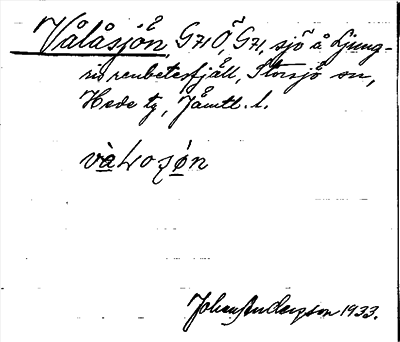 Vålåsjön, G71Ö, G71, sjö å Ljung-
ris renbetesfjäll, Storsjö sn,
Hede tg, Jämtl. l.
vàLosøn
Johan Anderzson 1933.